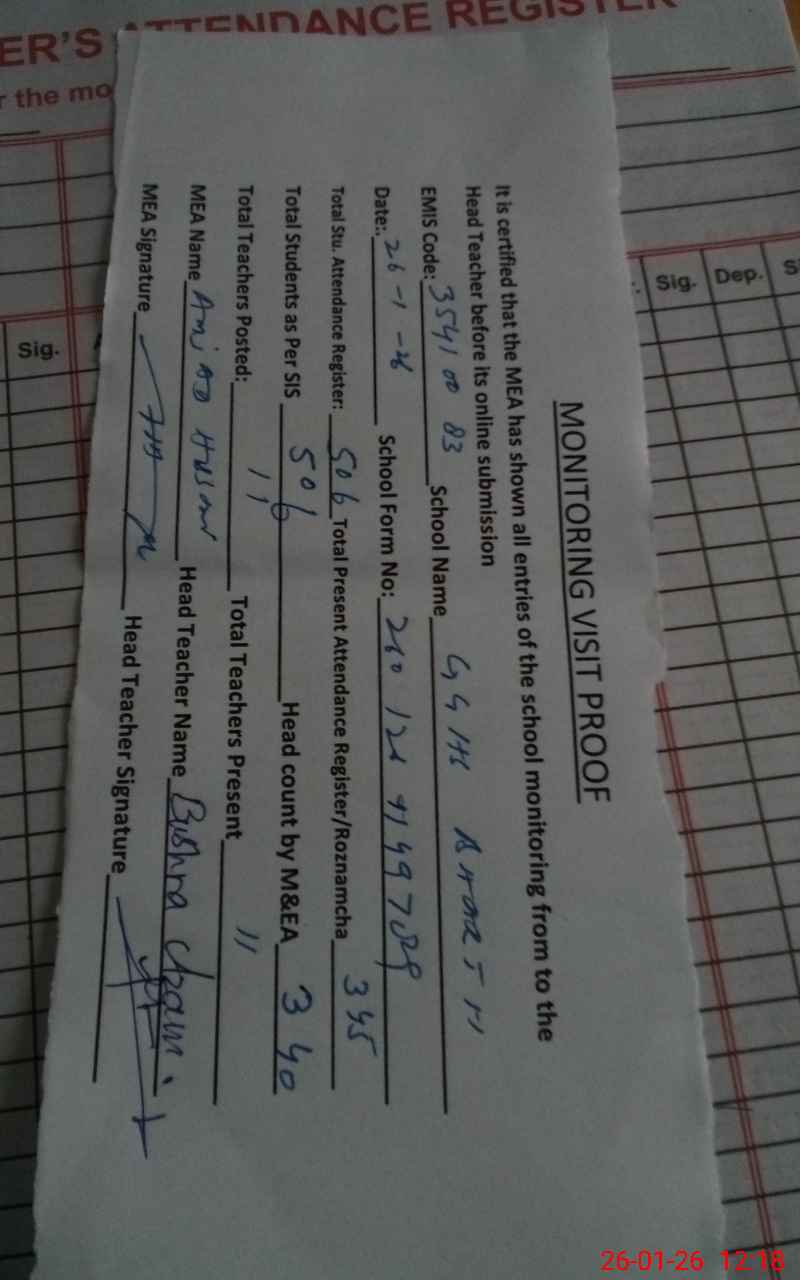 ER'S ATTENDANCE REGISTER
r the mo
Sig. Dep. S
Sig.
MONITORING VISIT PROOF
It is certified that the MEA has shown all entries of the school monitoring from to the
Head Teacher before its online submission
EMIS Code: 354100 83 School Name GGHS
Date:. 26-1-26 School Form No:
Total Stu. Attendance Register: 506 Total Present Attendance Register/Roznamcha 345
Total Students as Per SIS 506 Head count by M&EA 340
Total Teachers Posted: 11 Total Teachers Present 11
MEA Name Amjad Hussain Head Teacher Name Bushra
MEA Signature Head Teacher Signature
26-01-26 12:18